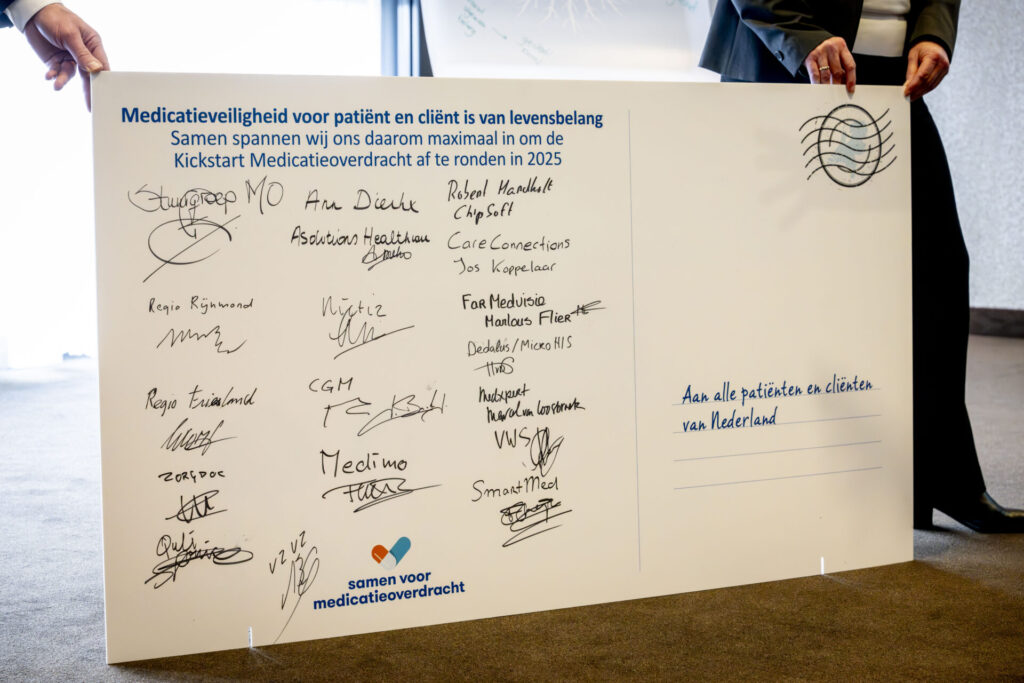 Medicatieveiligheid voor patiënt en cliënt is van levensbelang
Samen spannen wij ons daarom maximaal in om de
Kickstart Medicatieoverdracht af te ronden in 2025
Stuurgroep MO
Regio Rijnmond
Regio Friesland
ZORGDOC
Quli
Ann Dierkx
Asolutions Healthcare
Nictiz
CGM
Medimo
VZVZ
Robert Mandholt
ChipSoft
Care Connections
Jos Koppelaar
FarMedvisie
Marlous Flier
Dedalus/MicroHIS
Medxpert
Marcel van Loosbroek
VWS
SmartMed
samen voor
medicatieoverdracht
Aan alle patiënten en cliënten
van Nederland